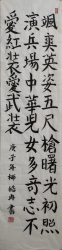 飒爽英姿五尺槍曙光初照
演兵場中華兒女多奇志不
愛紅裝愛武裝
庚子年